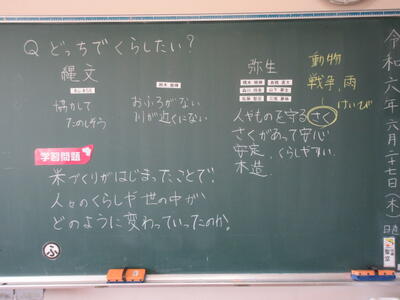 Q どっちでくらしたい?
縄文
協力して
たのしそう
おふろがない
川が近くにない
弥生
動物
戦争、雨
けいび
人やものを守るさく
さくがあって安心
安定、くらしやすい
木造
学習問題
米づくりがはじまったことで、
人々のくらしや世の中が
どのように変わっていったのか。
ふ
令和六年六月二十七日(木)
日直